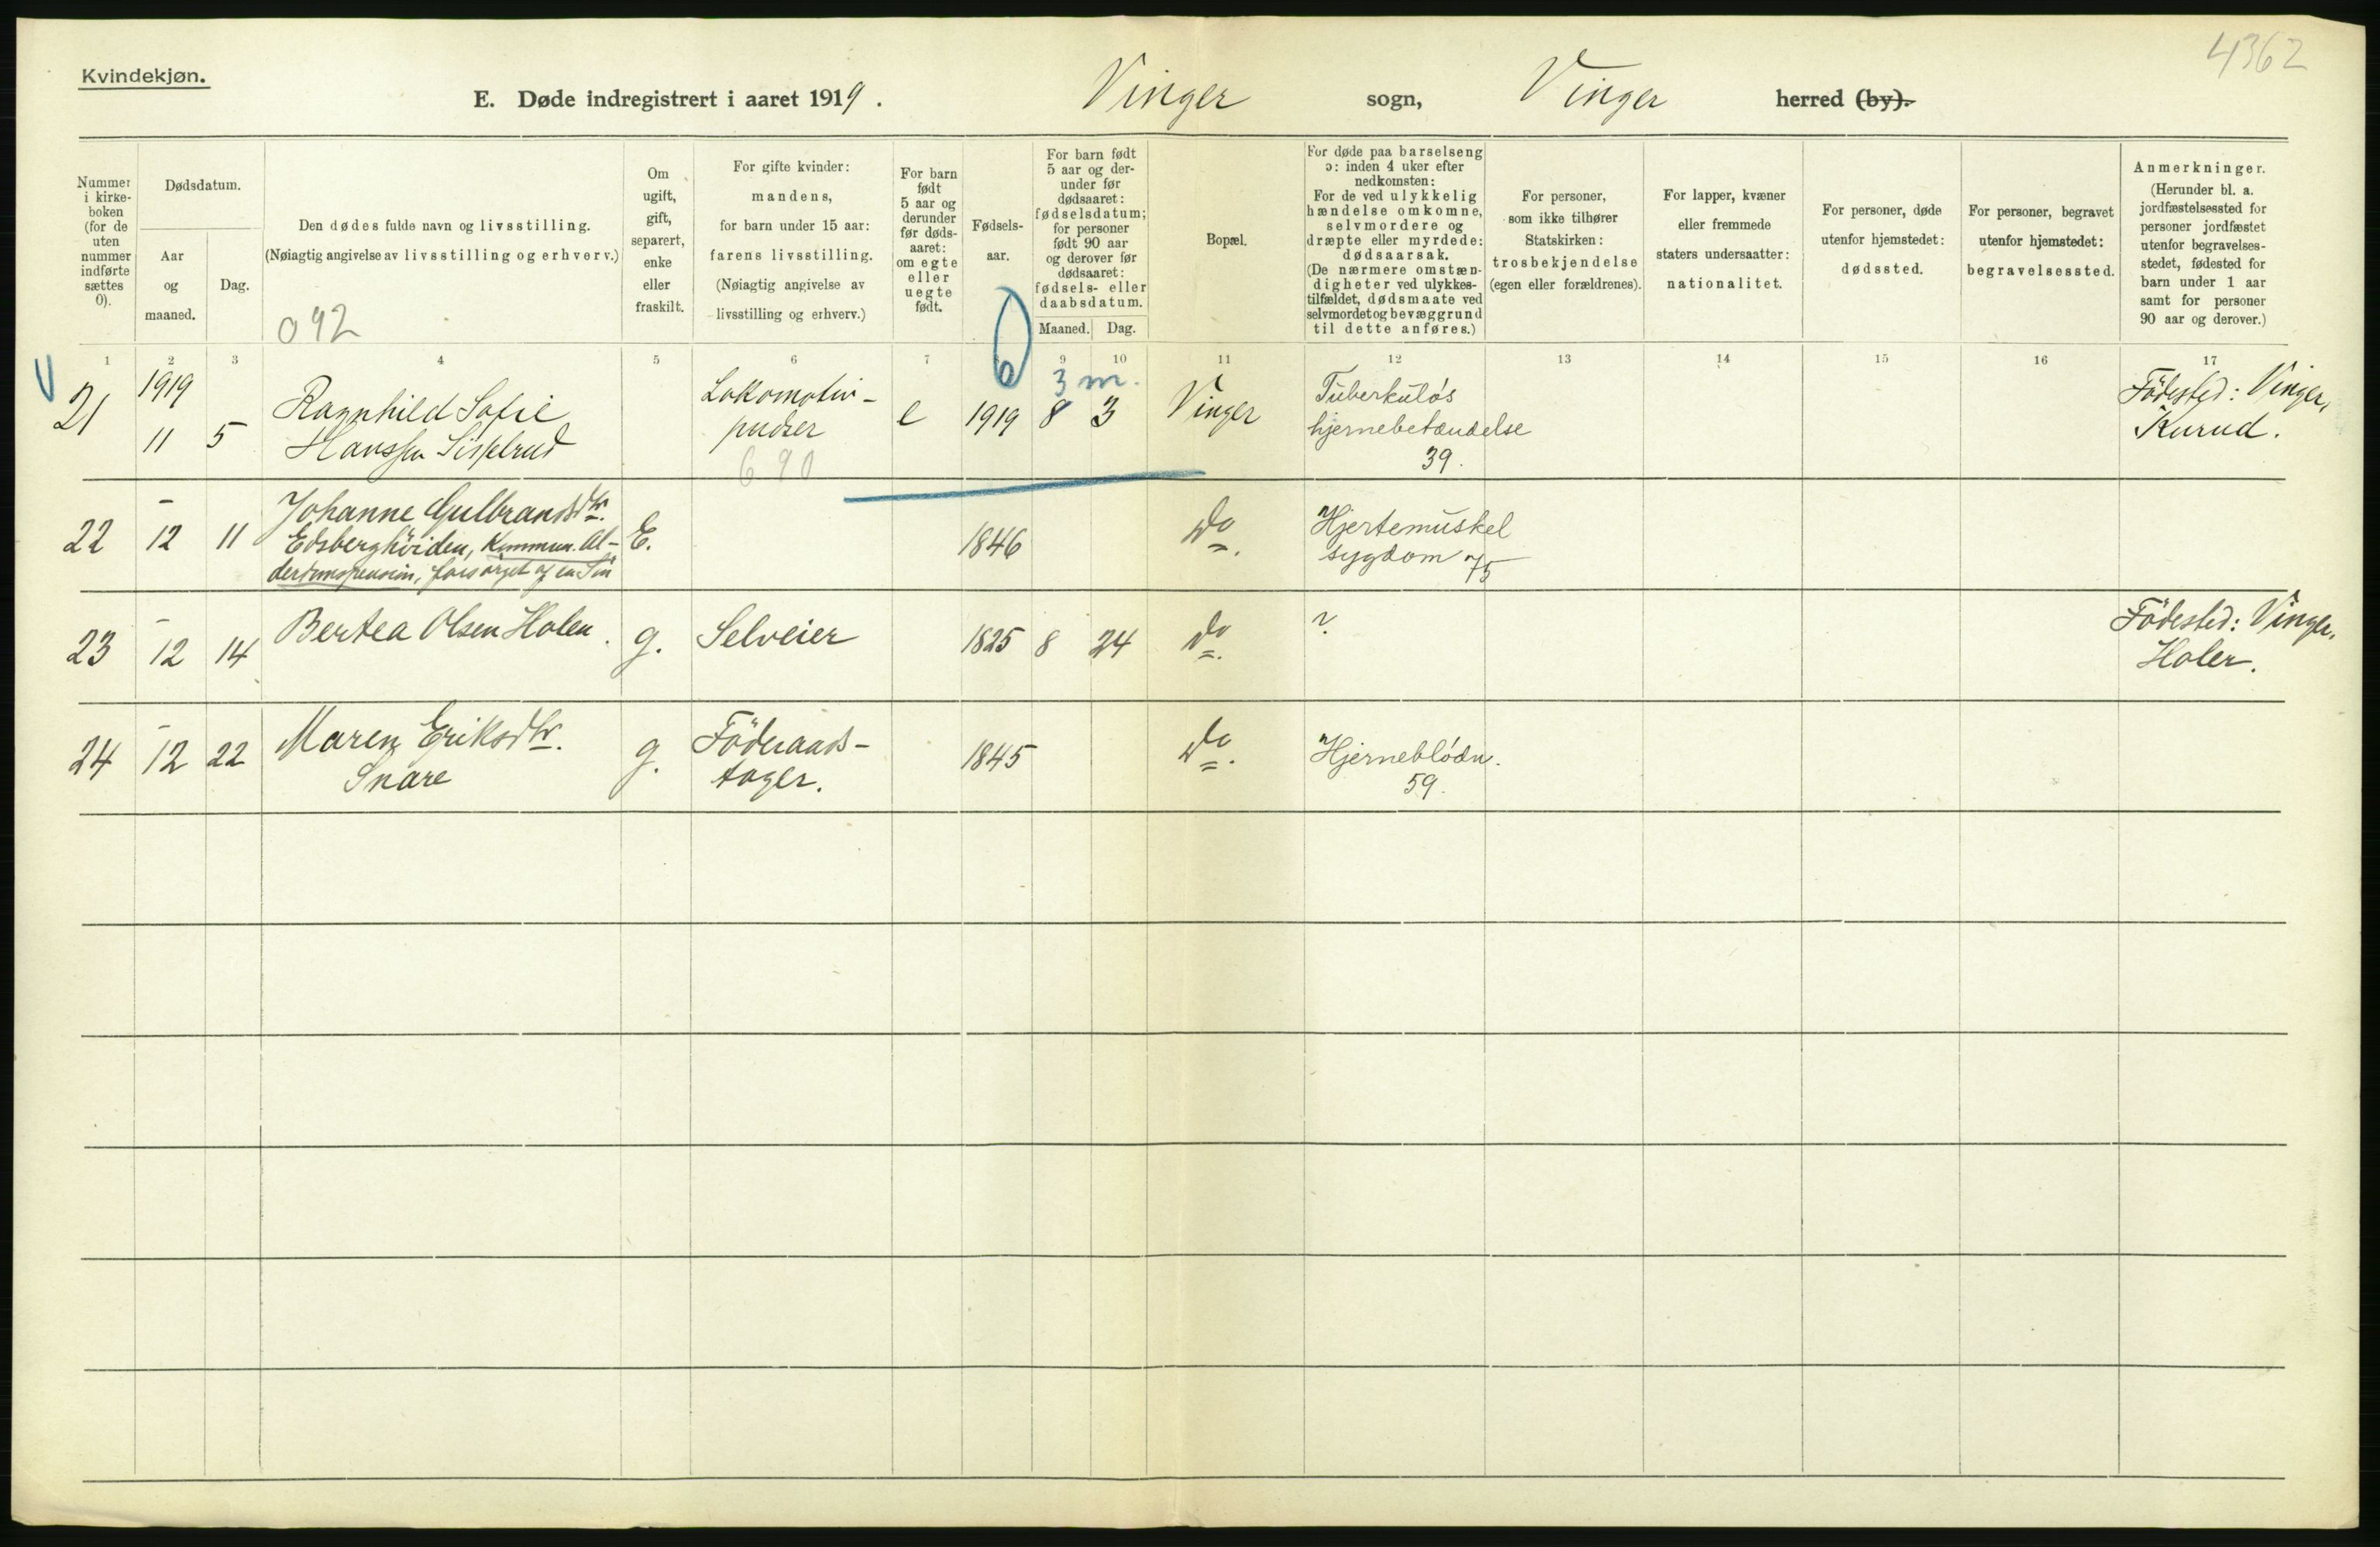 4362
Kvindekjøn.
E. Døde indregistrert i aaret 1919. Vinger sogn, Vinger herred (by).
Nummer i kirke-boken (for de uten nummer indførte sættes 0).
Dødsdatum.
Aar og maaned.
Dag.
Den dødes fulde navn og livsstilling.
(Nøiagtig angivelse av livsstilling og erhverv.)
092
Om ugift, gift, separert, enke eller fraskilt.
For gifte kvinder: mandens, for barn under 15 aar: farens livsstilling. (Nøiagtig angivelse av livsstilling og erhverv.)
For barn født 5 aar og derunder før døds-aaret: om egte eller uegte født.
Fødsels-aar.
For barn født 5 aar og der-under før dødsaaret: fødselsdatum; for personer født 90 aar og derover før dødsaaret: fødsels- eller daabsdatum.
Maaned. Dag.
Bopæl.
For døde paa barselseng ɔ: inden 4 uker efter nedkomsten: For de ved ulykkelig hændelse omkomne, selvmordere og dræpte eller myrdede: dødsaarsak. (De nærmere omstæn-digheter ved ulykkes-tilfældet, dødsmaate ved selvmordet og bevæggrund til dette anføres.)
For personer, som ikke tilhører Statskirken: trosbekjendelse (egen eller forældrenes).
For lapper, kvæner eller fremmede staters undersaatter: nationalitet.
For personer, døde utenfor hjemstedet: dødssted.
For personer, begravet utenfor hjemstedet: begravelsessted.
Anmerkninger. (Herunder bl. a. jordfæstelsessted for personer jordfæstet utenfor begravelses-stedet, fødested for barn under 1 aar samt for personer 90 aar og derover.)
1 2 3 4 5 6 7 8 9 10 11 12 13 14 15 16 17
21 1919 11 5 Ragnhild Sofie Hanssen Sisselrud Lokomotiv-pudser 690 e 1919 3 m. 8 3 Vinger Tuberkuløs hjernebetændelse 39. Födested: Vinger, Kurud.
22 - 12 11 Johanne Gulbrandsdtr. Edsberghöiden, Kommun. Al-derdomspension, forsörget af en Sön E. 1846 Do. Hjertemuskel sygdom 75
23 - 12 14 Bertea Olsen Holen. g. Selveier 1825 8 24 Do. ? Födested: Vinger, Holer.
24 - 12 22 Maren Eriksdtr. Snare g. Föderaads-tager. 1845 Do. Hjerneblödn. 59.